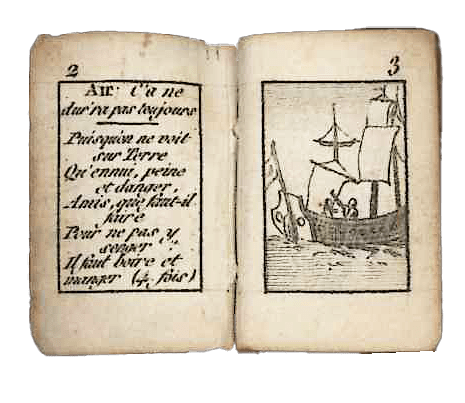 2
Air: Ça ne
dur'ra pas toujours
Puisqu'on ne voit
sur Terre
Qu'ennui, peine
et danger,
Amis, que faut-il
faire
Pour ne pas y
songer
Il faut boire et
manger (4. fois)
3